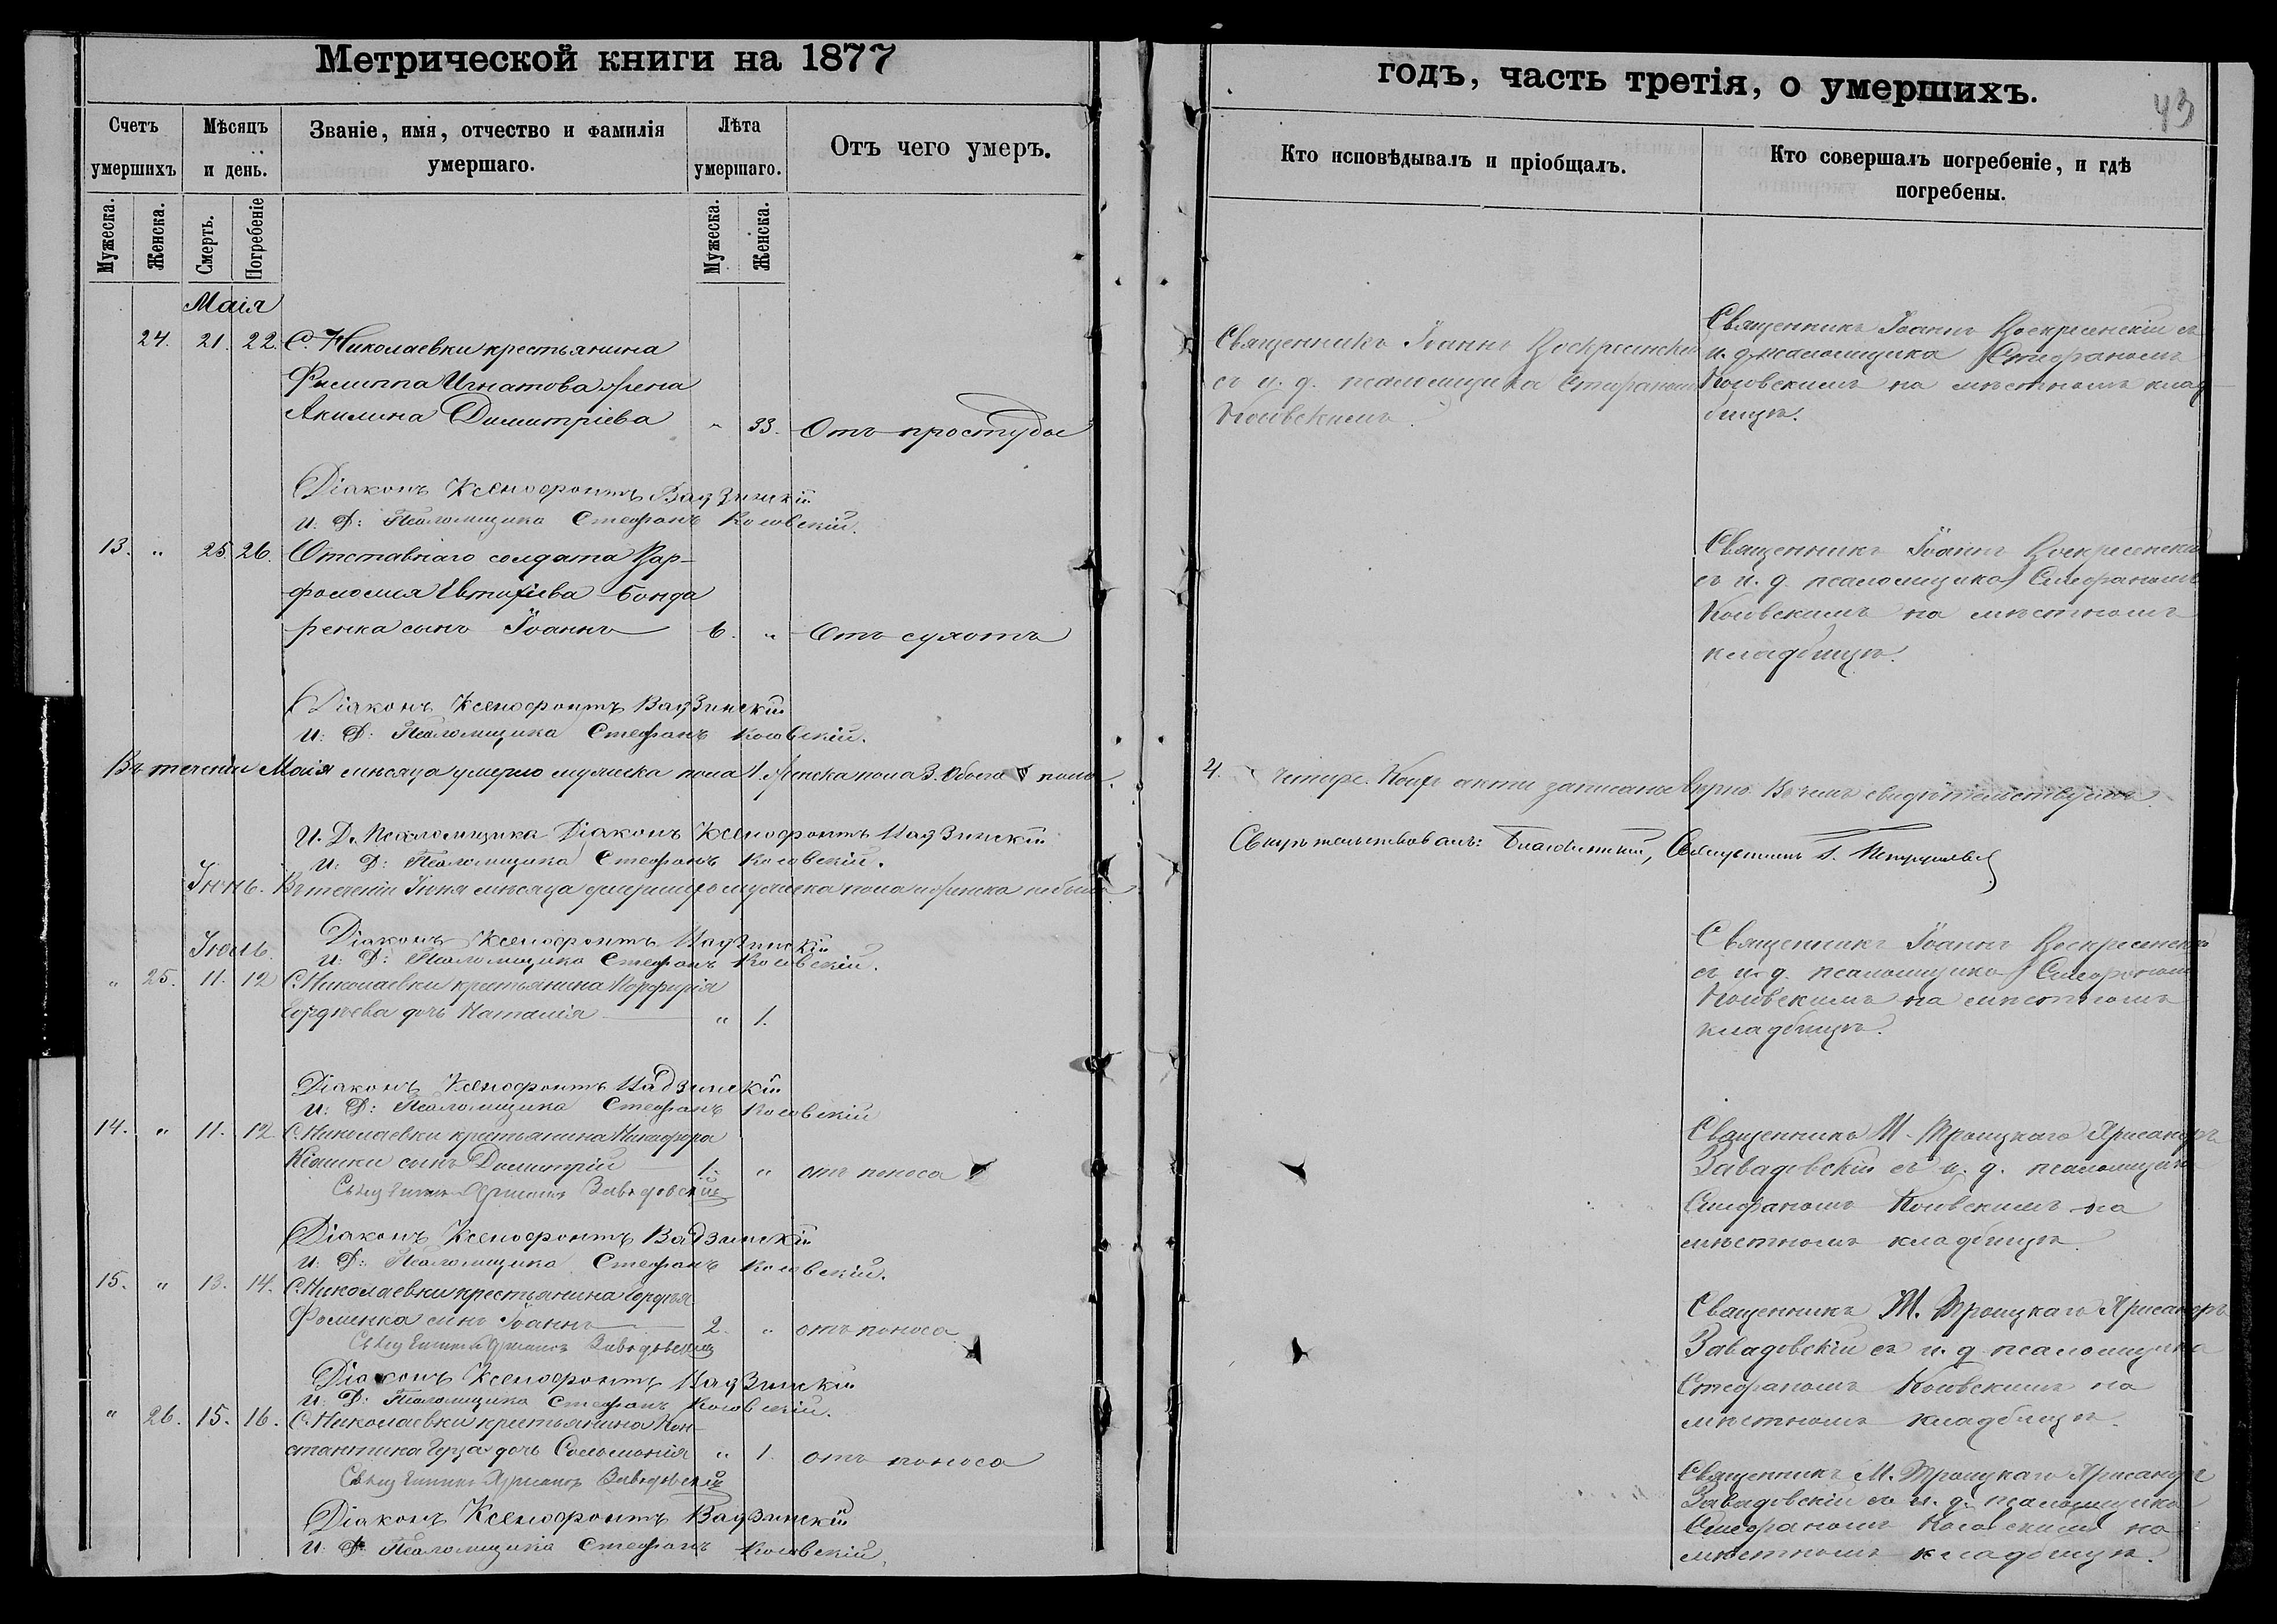 Метрической книги на 1877
Счетъ умершихъ
Мѣсяцъ и день.
Званіе, имя, отчество и фамилія умершаго.
Лѣта умершаго.
Отъ чего умеръ.
Мужеска.
Женска.
Смерть.
Погребеніе
Мужеска.
Женска.
Маія
24. 21. 22. С. Николаевки крестьянина
Филиппа Игнатова жена
Акилина Димитріева " 33. Отъ простуды
Діаконъ Ксенофонтъ
И: Д: Псаломщика Стефанъ Косовскій.
13. " 25. 26. Отставнаго солдата Вар-
фоломея Евтифіева Бонда
ренка сынъ Іоаннъ 6. " Отъ сухотъ
Діаконъ Ксенофонтъ
И: Д: Псаломщика Стефанъ Косовскій.
Въ теченіи Маія мѣсяца умерло мужеска пола 1. женска пола 3. Обоего пола
И. Д. Псаломщика Діаконъ Ксенофонтъ
И: Д: Псаломщика Стефанъ Косовскій.
Іюнь. Въ теченіи Іюня мѣсяца умершихъ мужеска пола и женска небыло
Діаконъ Ксенофонтъ
Іюль.
И: Д: Псаломщика Стефанъ Косовскій.
" 25. 11. 12 С. Николаевки крестьянина Порфирія
Гордѣева дочь Наталія " 1.
Діаконъ Ксенофонтъ
И: Д: Псаломщика Стефанъ Косовскій
14. " 11. 12 С. Николаевки крестьянина Никифора
сынъ Димитрій 1. " отъ поноса
Священникъ Завадовскій
Діаконъ Ксенофонтъ
И: Д: Псаломщика Стефанъ Косовскій.
15. " 13. 14. С. Николаевки крестьянина Гордѣя
Фоменка сынъ Іоаннъ 2. " отъ поноса
Священникъ Завадовскій
Діаконъ Ксенофонтъ
И: Д: Псаломщика Стефанъ Косовскій.
" 26. 15. 16. С. Николаевки крестьянина Кон-
стантина дочь Соломонія " 1. отъ поноса
Священникъ Завадовскій
Діаконъ Ксенофонтъ
И: Д: Псаломщика Стефанъ Косовскій.
годъ, часть третія, о умершихъ.
43
Кто исповѣдывалъ и пріобщалъ.
Кто совершалъ погребеніе, и гдѣ погребены.
Священникъ Іоаннъ Воскресенскій
съ и. д. псаломщика Стефаномъ
Косовскимъ.
Священникъ Іоаннъ Воскресенскій съ
и. д. псаломщика Стефаномъ
Косовскимъ на мѣстномъ клад
бищѣ.
Священникъ Іоаннъ Воскресенскій
съ и. д. псаломщика Стефаномъ
Косовскимъ на мѣстномъ
кладбищѣ.
4. четыре. акты записаны вѣрно. Въ чемъ свидѣтельствуемъ.
Свидѣтельствовалъ: Благочинный, Священникъ
Священникъ Іоаннъ Воскресенскій
съ и. д. псаломщика Стефаномъ
Косовскимъ на мѣстномъ
кладбищѣ.
Священникъ М. Троицкаго
Завадовскій съ и. д. псаломщика
Стефаномъ Косовскимъ на
мѣстномъ кладбищѣ.
Священникъ М. Троицкаго
Завадовскій съ и. д. псаломщика
Стефаномъ Косовскимъ на
мѣстномъ кладбищѣ.
Священникъ М. Троицкаго
Завадовскій съ и. д. псаломщика
Стефаномъ Косовскимъ на
мѣстномъ кладбищѣ.